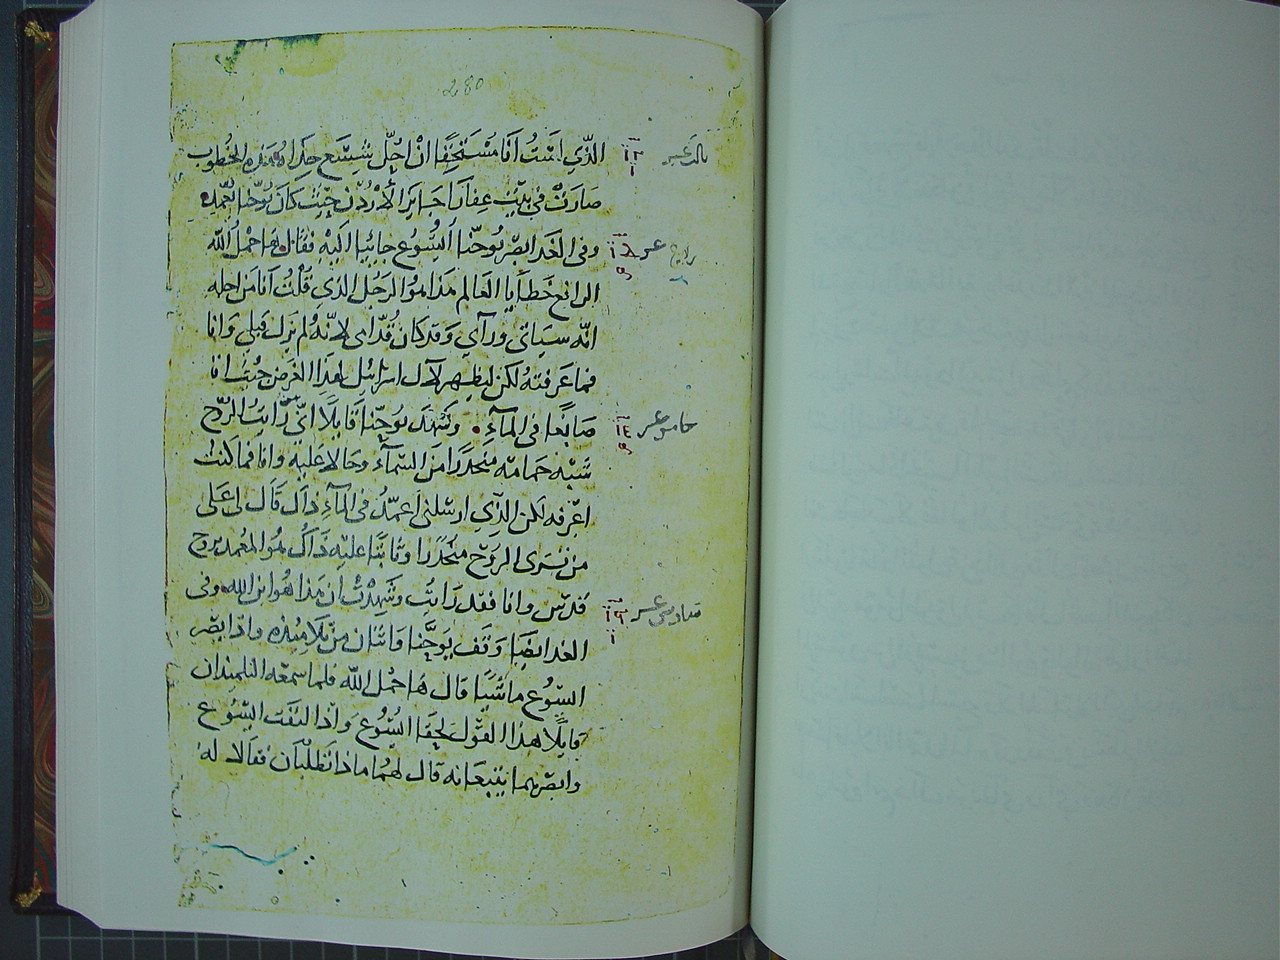 280
الذي لستُ انا مُستحِقًا ان احِلّ شِسْع حِذَاه هذه الخطوب
صَارَتْ في بيْت عِفارَا جَايز الأُرْدُن حيْث كان يُوحَنا يُعمد
وفي الغد ابصَر يُوحَنّا اليسُوع جائيا اليْهِ فقال ها حمْل الله
الرافع خَطايا العَالم هَذا هُوَ الرَجُل الذي قُلْتُ انا من اجله
انّه سيَاتي ورآي وَقد كان قُدّامى لانّه لم يزل قبلي وَانا
فما عَرفته لكن ليظهر لآل اسرائيل لهذا الغرض جيت انا
صَابغًا في المآءِ وشَهدَ يُوحَنّا قَايلًا انّي رَايتُ الرّوح
شَبْه حَمامَة منحدرًا منَ السّمآء وحَالا عليه وانا فما كنت
اعْرفه لكن الذِي ارسَلني اعمّدُ في المآءِ ذاك قَال لي عَلى
من تَرى الروح منحدرا وثابتًا عليْه ذَاك هُو المعُمد بروح
قدس وانا فقد رَايتُ وشَهدْتُ ان هَذا هُو ابن الله وفى
الغد ايضًا وَقف يوحَنا وَاثنان مِنْ تلاميذه واذ ابصَر
اليسُوع ماشيًا قال هُا حَمل الله فلما سمعه التلميذان
قايلًا هذا القوْل لِحقا اليسُوع وَاذا التفت اليسُوع
وابصرهما يتبعَانه قال لهُما ماذا تطلبَان فقالا له
رابع عشر
خامس عشر
سادس عشر